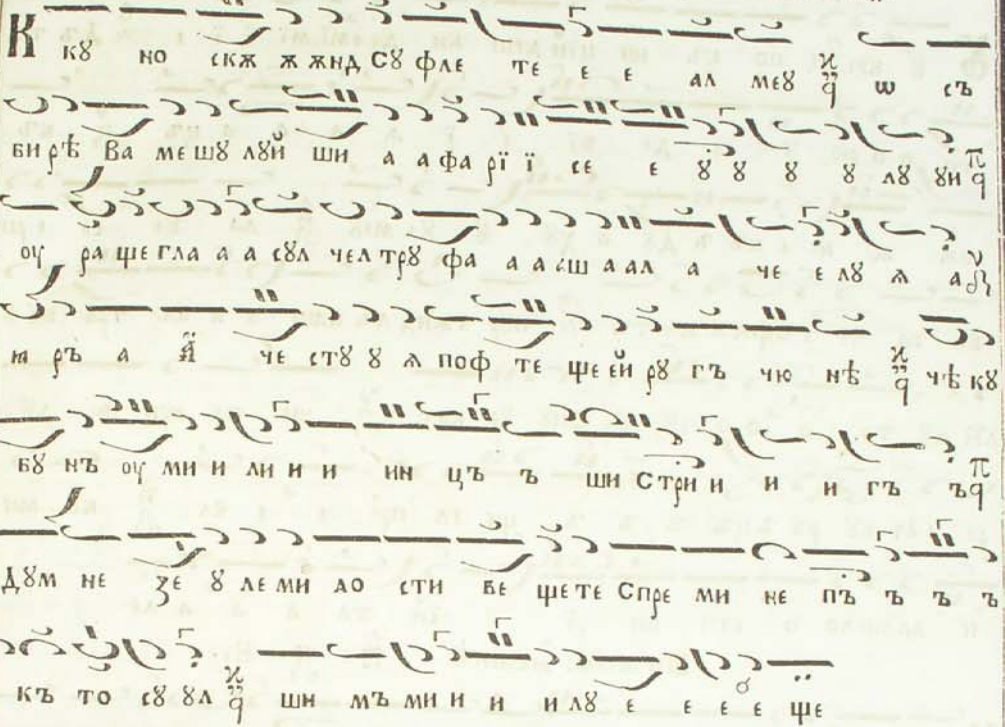 К кꙋ но скѫ ѫ ѫнд Сꙋ фле те е е ал меꙋ ѡ съ
би рѣ Ва ме шꙋ лꙋй ши а а фа рї ї се е ꙋ ꙋ ꙋ ꙋ лꙋ ꙋи
оу ра ще гла а а сꙋл чел трꙋ фа а а аш а ал а че е лꙋ ѧ а
ꙗ ръ а че стꙋ ꙋ ѧ поф те ще ей рꙋ гъ чю нѣ чѣ кꙋ
бꙋ нъ оу ми и ли и и ин цъ ъ ши Стри и и и гъ ъ
Дꙋм не зе ꙋ ле ми ло сти ве ще те Спре ми не пъ ъ ъ ъ
къ то сꙋ ꙋл ши мъ ми и и и лꙋ е е е е ще